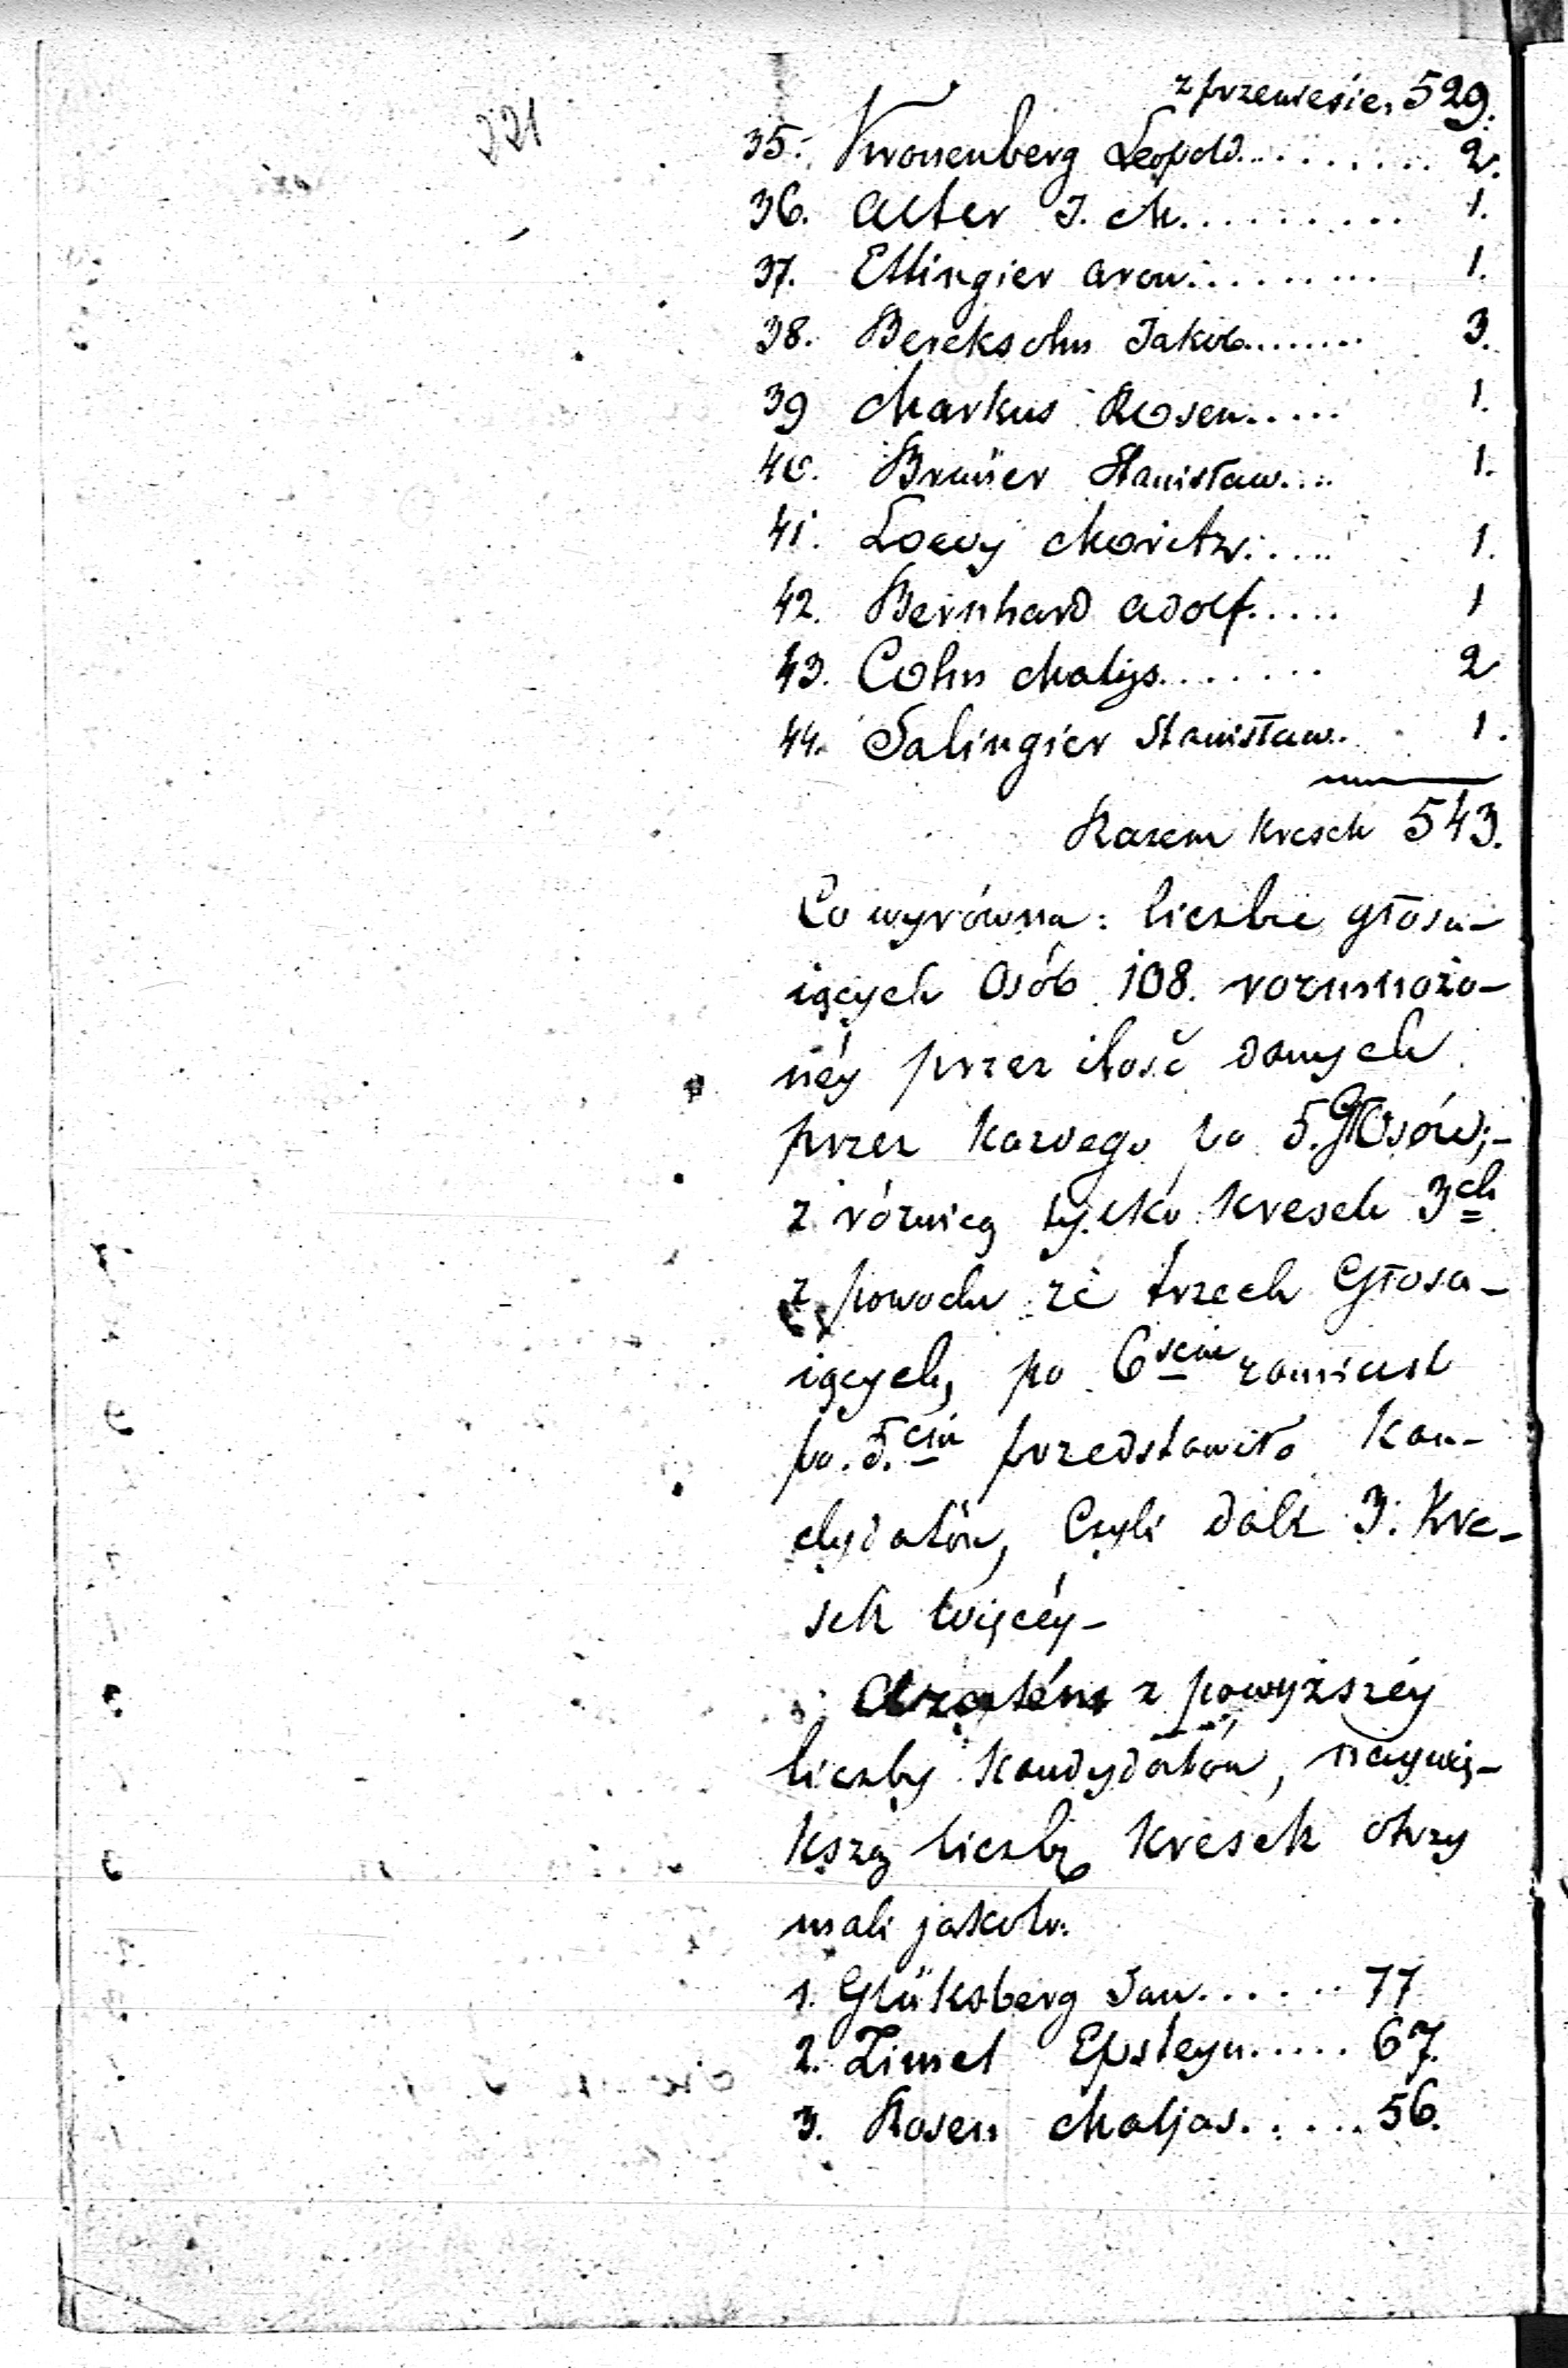 z przeniesie. 529.
221
35. Kronenberg Leopold......... 2.
36. Alter J. M.......... 1.
37. Ettingier Aron......... 1.
38. Bereksohn Jakob........ 3.
39 Markus Rosen..... 1.
40. Brüner Stanisław.... 1.
41. Loewy Moritz..... 1.
42. Bernhard Adolf..... 1
43. Cohn Matys....... 2
44. Salingier Stanisław.. 1.
Razem Kresek 543.
Co wyrówna: liczbie głosu-
iących Osób 108. rozmnożo-
néy przez ilość danych
przez każdego po 5. Głosów;-
z różnicą tylko kresek 3ch
z powodu że trzech Głosu-
iących, po 6ciu zamiast
po 5.ciu przedstawiło Kan-
dydatów, Czyli dało 3. Kre-
sek więcéy-
A zatém z powyższéy
liczby Kandydatów, naywię-
kszą liczbę Kresek otrzy
mali jakoto:
1. Glüksberg Jan...... 77
2. Zimel Epsteyn..... 67.
3. Rosen Matjas...... 56.